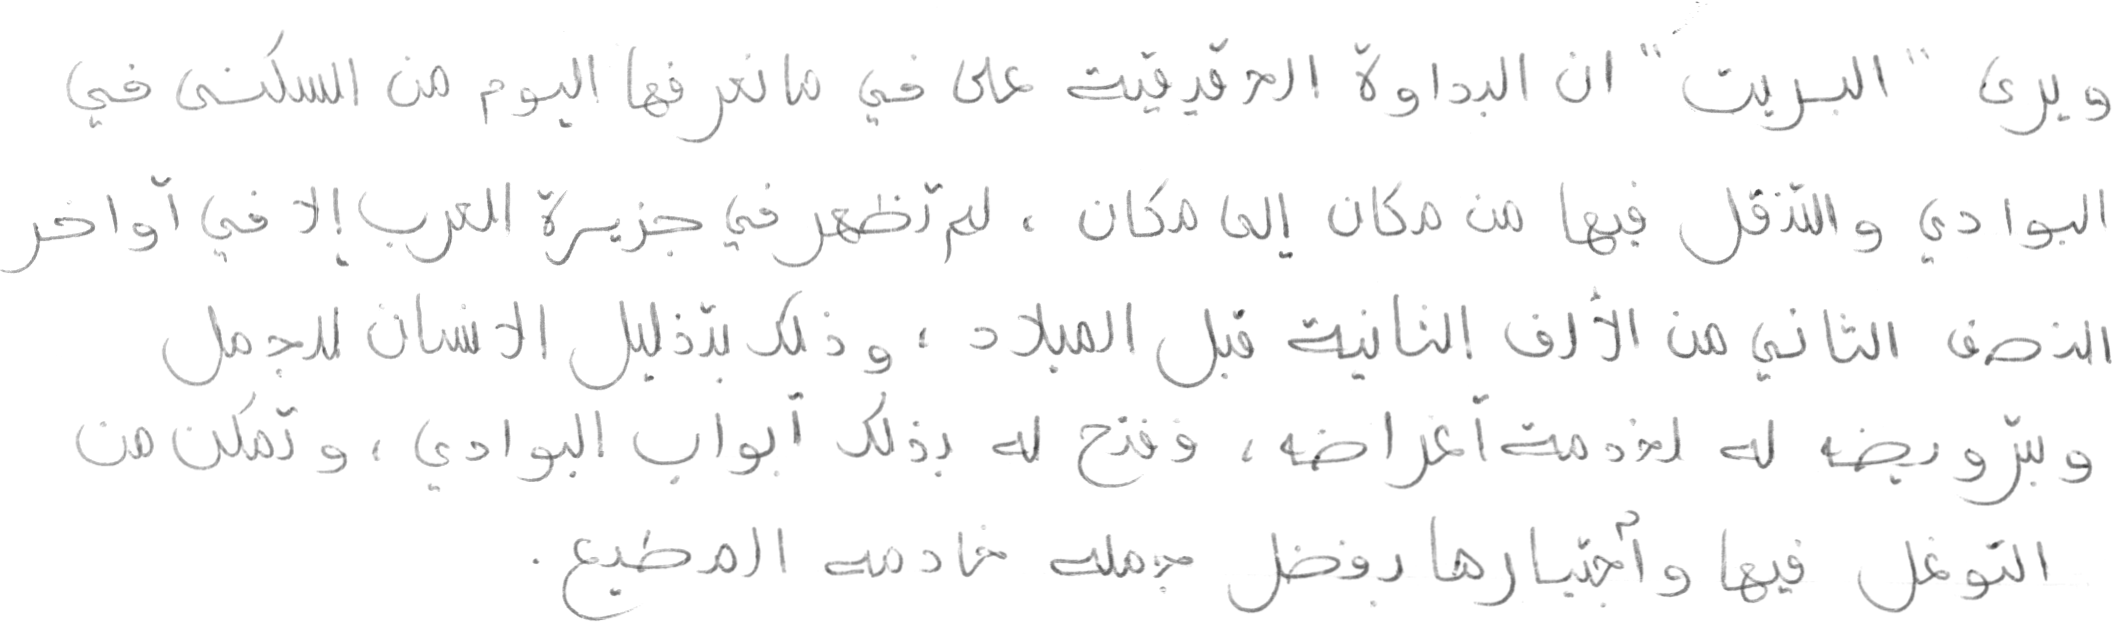 ويرى "البريت" ان البداوة الحقيقية على في ما نعرفها اليوم من السكنى في
البوادي والتنقل فيها من مكان إلى مكان ، لم تظهر في جزيرة العرب إلا في أواخر
النصف الثاني من الألف الثانية قبل الميلاد ، وذلك بتذليل الانسان للجمل
وبترويضه له لخدمة أغراضه ، ففتح له بذلك أبواب البوادي ، وتمكن من
التوغل فيها وأجتيازها بفضل جمله خادمه المطيع .